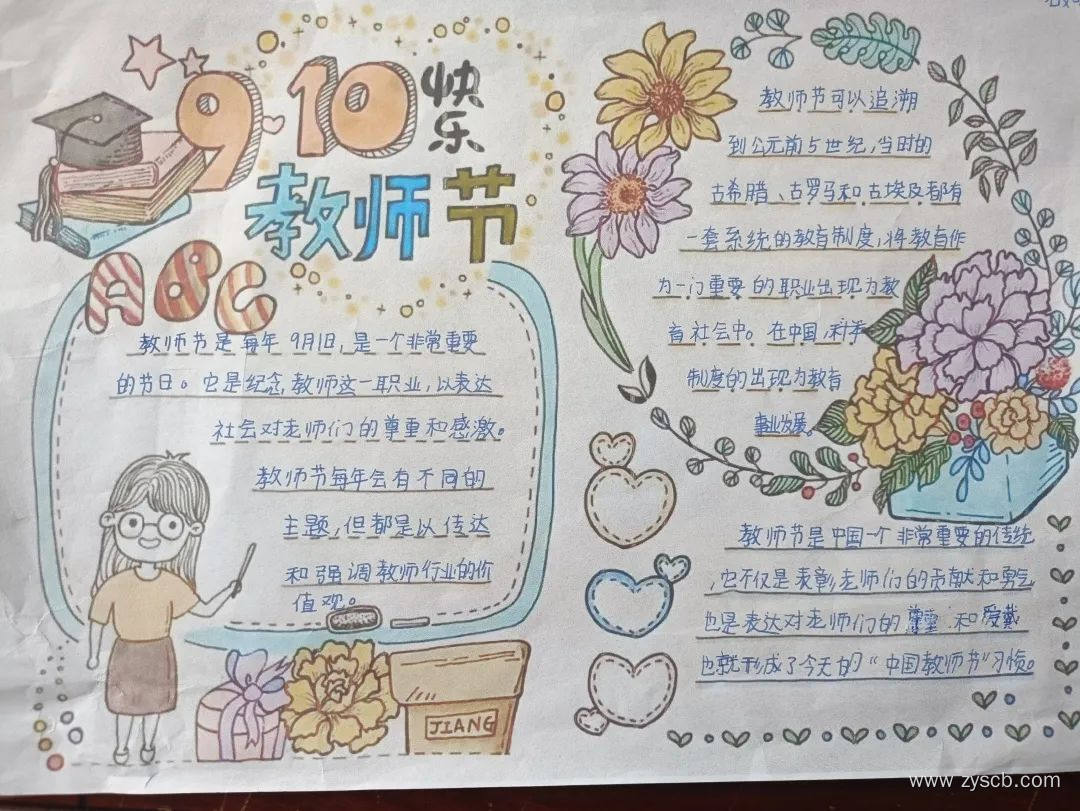 9·10
快乐
教师节
ABC
教师节是每年9月1日,是一个非常重要
的节日。它是纪念,教师这一职业,以表达
社会对老师们的尊重和感激。
教师节每年会有不同的
主题,但都是以传达
和强调教师行业的价
值观。
JIANG
教师节可以追溯
到公元前5世纪,当时的
古希腊、古罗马和古埃及都有
一套系统的教育制度,将教育作
为一门重要的职业出现为教
育社会中。在中国,科举
制度的出现为教育
事业发展。
教师节是中国一个非常重要的传统
,它不仅是表彰老师们的贡献和勇气
也是表达对老师们的尊重和爱戴
也就形成了今天的"中国教师节"习惯。
www.zyscb.com